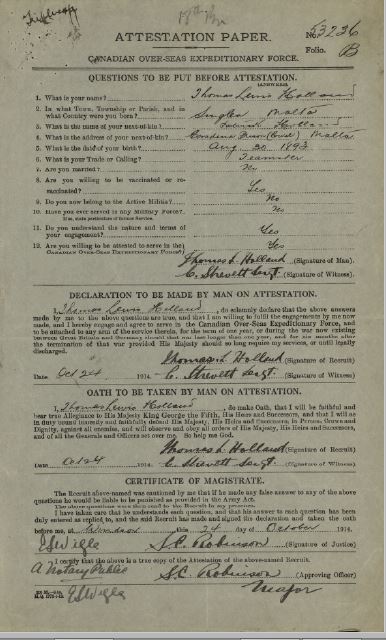 Triplicate
18th Bn
ATTESTATION PAPER.
No. 53236
Folio. B
CANADIAN OVER-SEAS EXPEDITIONARY FORCE.
QUESTIONS TO BE PUT BEFORE ATTESTATION.
(ANSWERS)
1. What is your name? Thomas Lewis Holland
2. In what Town, Township or Parish, and in
what Country were you born? Malta
3. What is the name of your next-of-kin? Holland
4. What is the address of your next-of-kin? Malta
5. What is the date of your birth? Aug. 20 1893
6. What is your Trade or Calling? Teamster
7. Are you married? No
8. Are you willing to be vaccinated or re-
vaccinated? Yes
9. Do you now belong to the Active Militia? No
10. Have you ever served in any Military Force? No
If so, state particulars of former Service.
11. Do you understand the nature and terms of
your engagement? Yes
12. Are you willing to be attested to serve in the Yes
CANADIAN OVER-SEAS EXPEDITIONARY FORCE?
Thomas L Holland (Signature of Man).
C. Strevett Sergt. (Signature of Witness).
DECLARATION TO BE MADE BY MAN ON ATTESTATION.
I, Thomas Lewis Holland, do solemnly declare that the above answers
made by me to the above questions are true, and that I am willing to fulfil the engagements by me now
made, and I hereby engage and agree to serve in the Canadian Over-Seas Expeditionary Force, and
to be attached to any arm of the service therein, for the term of one year, or during the war now existing
between Great Britain and Germany should that war last longer than one year, and for six months after
the termination of that war provided His Majesty should so long require my services, or until legally
discharged.
Thomas L Holland (Signature of Recruit)
Date Oct 24 1914. C. Strevett Sergt. (Signature of Witness)
OATH TO BE TAKEN BY MAN ON ATTESTATION.
I, Thomas Lewis Holland, do make Oath, that I will be faithful and
bear true Allegiance to His Majesty King George the Fifth, His Heirs and Successors, and that I will as
in duty bound honestly and faithfully defend His Majesty, His Heirs and Successors, in Person, Crown and
Dignity, against all enemies, and will observe and obey all orders of His Majesty, His Heirs and Successors,
and of all the Generals and Officers set over me. So help me God.
Thomas L Holland (Signature of Recruit)
Date Oct 24 1914. C. Strevett Sergt. (Signature of Witness)
CERTIFICATE OF MAGISTRATE.
The Recruit above-named was cautioned by me that if he made any false answer to any of the above
questions he would be liable to be punished as provided in the Army Act.
The above questions were then read to the Recruit in my presence.
I have taken care that he understands each question, and that his answer to each question has been
duly entered as replied to, and the said Recruit has made and signed the declaration and taken the oath
before me, at Windsor this 24 day of October 1914.
E S Wigle S.C. Robinson (Signature of Justice)
I certify that the above is a true copy of the Attestation of the above-named Recruit.
A Notary Public S.C. Robinson (Approving Officer)
E S Wigle Major